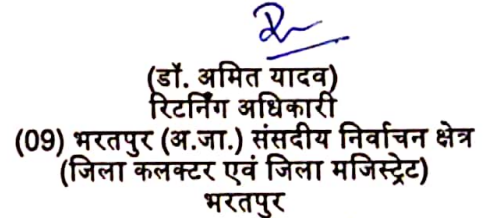 (डॉ. अमित यादव)
रिटर्निंग अधिकारी
(09) भरतपुर (अ.जा.) संसदीय निर्वाचन क्षेत्र
(जिला कलक्टर एवं जिला मजिस्ट्रेट)
भरतपुर